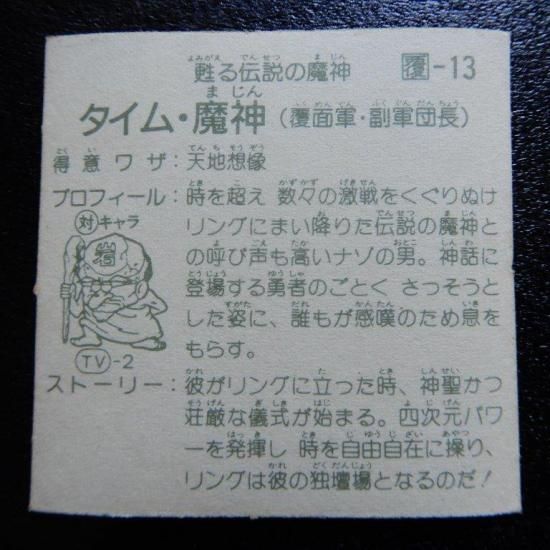 甦る伝説の魔神 覆-13
タイム・魔神（覆面軍・副軍団長）
得意ワザ：天地想像
プロフィール：時を超え 数々の激戦をくぐりぬけ
対キャラ リングにまい降りた伝説の魔神と
の呼び声も高いナゾの男。神話に
登場する勇者のごとく さっそうと
した姿に、誰もが感嘆のため息を
もらす。
TV-2
ストーリー：彼がリングに立った時、神聖かつ
荘厳な儀式が始まる。四次元パワ
ーを発揮し 時を自由自在に操り、
リングは彼の独壇場となるのだ！